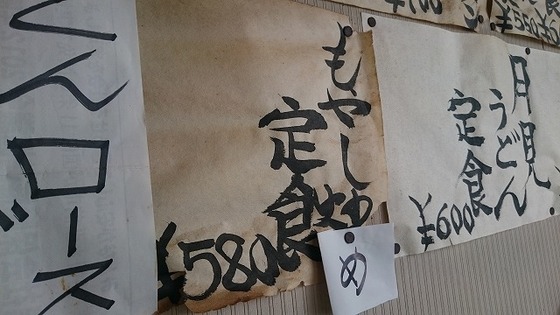 月見
うどん
定食
¥600
もやし炒め
定食
¥580
め
ロース
¥700
¥550